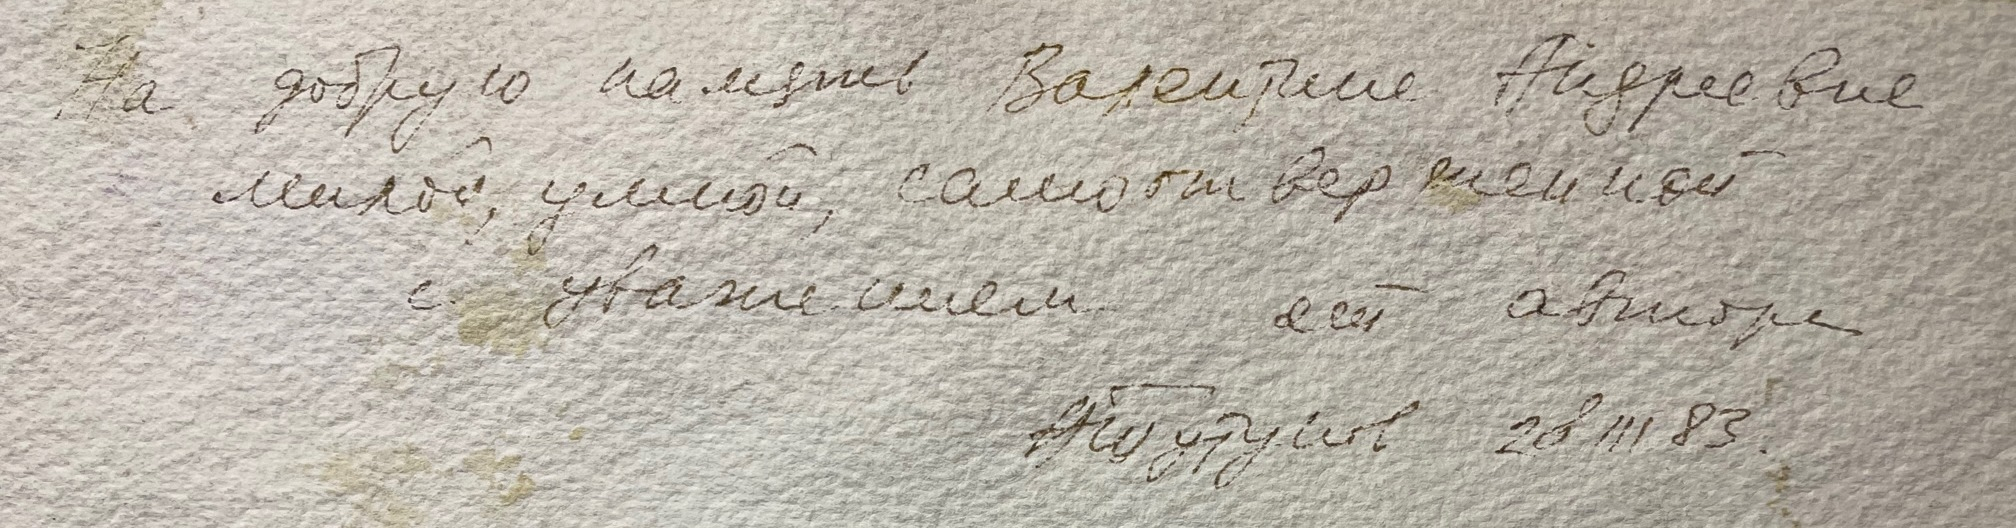 На добрую память Валентине Андреевне
милой, умной, самоотверженной
с уважением от автора
28 III 83.